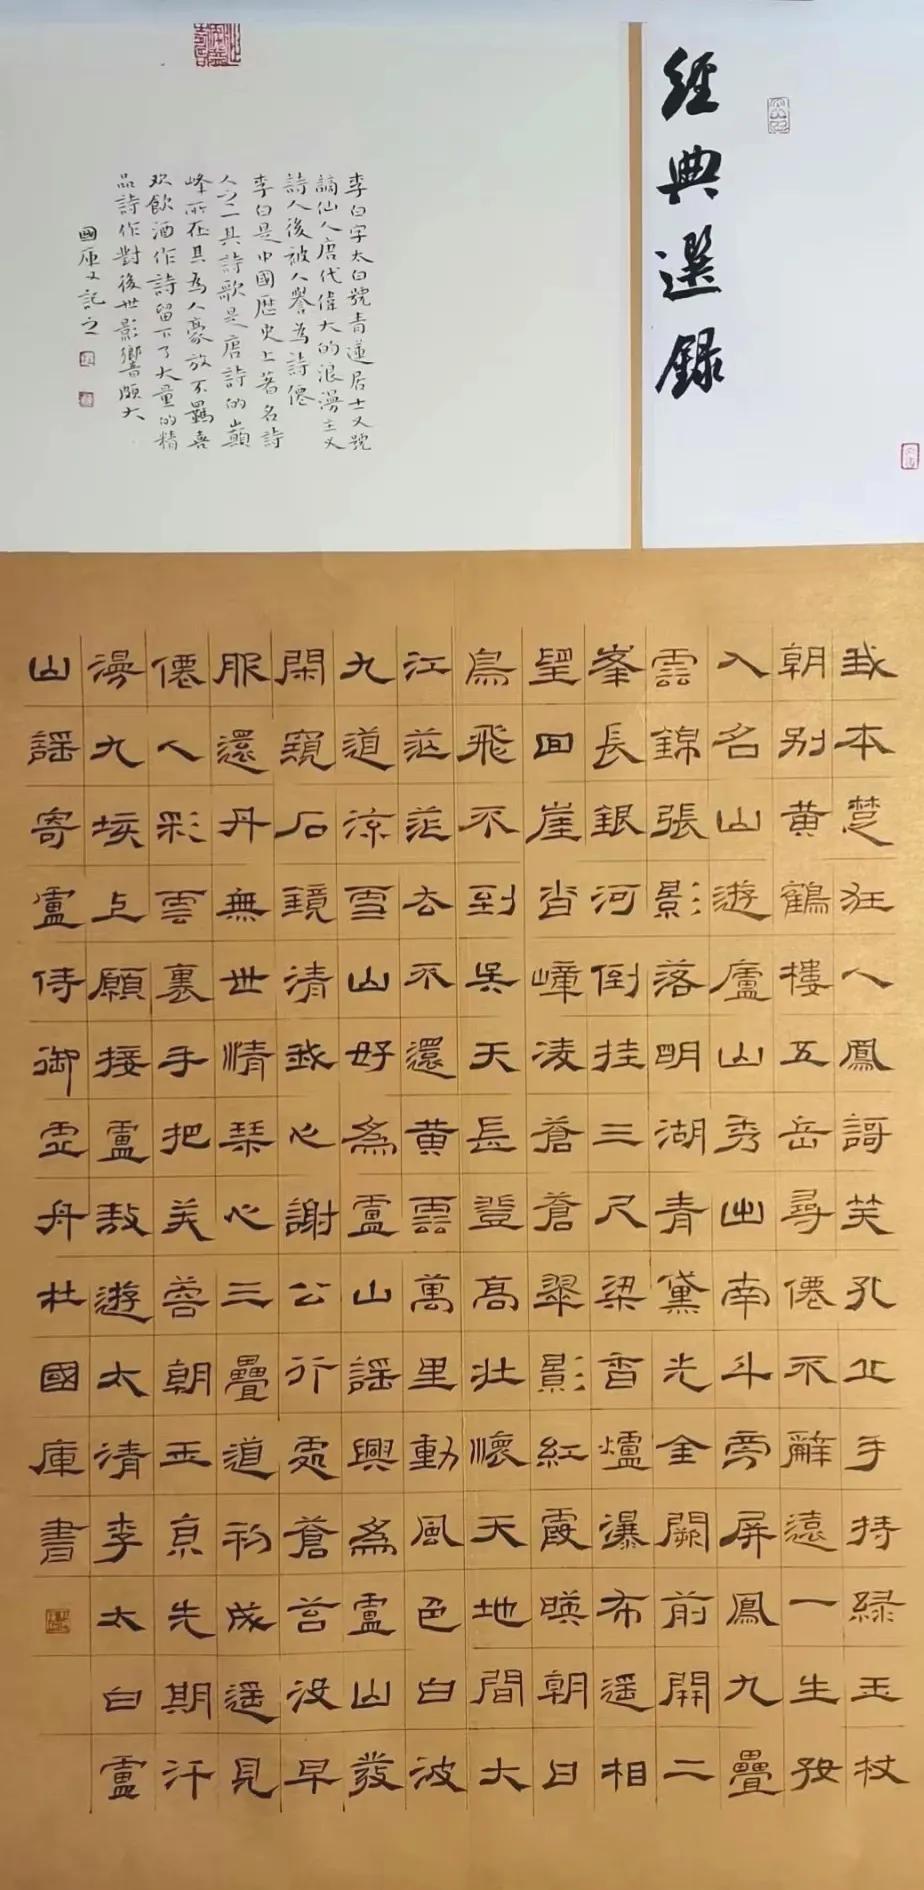 經典選錄
李白字太白號青蓮居士又號
謫仙人唐代偉大的浪漫主义
詩人後被人譽為詩僊
李白是中國歷史上著名詩
人之一其詩歌是唐詩的巔
峰所在其為人豪放不羈喜
欢飲酒作詩留下了大量的精
品詩作對後世影響頗大
國庫又記之
我本楚狂人鳳謌笑孔丘手持緑玉杖
朝别黄鶴樓五岳尋僊不辭遠一生好
入名山遊廬山秀出南斗旁屏鳳九疊
雲錦張影落明湖青黛光金闕前開二
峯長銀河倒挂三尺梁香爐瀑布遥相
望回崖沓嶂凌蒼蒼翠影紅霞暎朝日
鳥飛不到吳天長登高壯懷天地間大
江茫茫去不還黄雲萬里動風色白波
九道流雪山好為盧山謡興為盧山發
閑窺石鏡清我心謝公行處蒼苔没早
服還丹無世情琴心三疊道初成遥見
僊人彩雲裏手把芙蓉朝玉京先期汗
漫九垓上願接盧敖遊太清李太白盧
山謡寄盧侍御虚舟杜國庫書